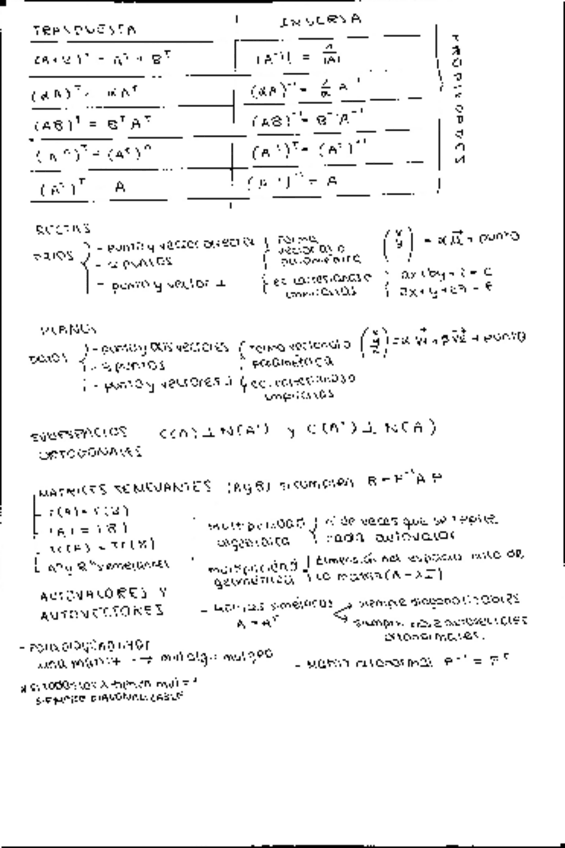 TRASPUESTA INVERSA
(A+B)ᵀ = Aᵀ + Bᵀ |A⁻¹| = 1/|A|
(αA)ᵀ = αAᵀ (αA)⁻¹ = 1/α A⁻¹
(AB)ᵀ = BᵀAᵀ (AB)⁻¹ = B⁻¹A⁻¹
(Aⁿ)ᵀ = (Aᵀ)ⁿ (A⁻¹)ᵀ = (Aᵀ)⁻¹
(Aᵀ)ᵀ A (A⁻¹)⁻¹ = A
PROPIEDADES
RECTAS
DATOS
- punto y vector director
- 2 puntos
- punto y vector ⊥
forma
vectorial o
paramétrica
ec. cartesianas o
implícitas
PLANOS
DATOS
- punto y dos vectores
- 3 puntos
- punto y vectores ⊥
forma vectorial o
paramétrica
ec. cartesianas o
implícitas
SUBESPACIOS C(A) ⊥ N(Aᵀ) y C(Aᵀ) ⊥ N(A)
ORTOGONALES
MATRICES SEMEJANTES (A y B) si cumplen B = P⁻¹AP
- r(A) = r(B)
- |A| = |B|
- Tr(A) = Tr(B)
- Aⁿ y Bⁿ semejantes
multiplicidad
algebraica
nº de veces que se repite
cada autovalor
multiplicidad
geométrica
dimensión del espacio nulo de
la matriz (A - λI)
AUTOVALORES Y
AUTOVECTORES
- Matrices simétricas
A = Aᵀ
siempre diagonalizables
siempre autovectores
ortonormales.
- Para diagonalizar
una matriz → mul alg = mul geo
- Matriz ortonormal P⁻¹ = Pᵀ
* si todos los λ tienen mul = 1
SIEMPRE DIAGONALIZABLE